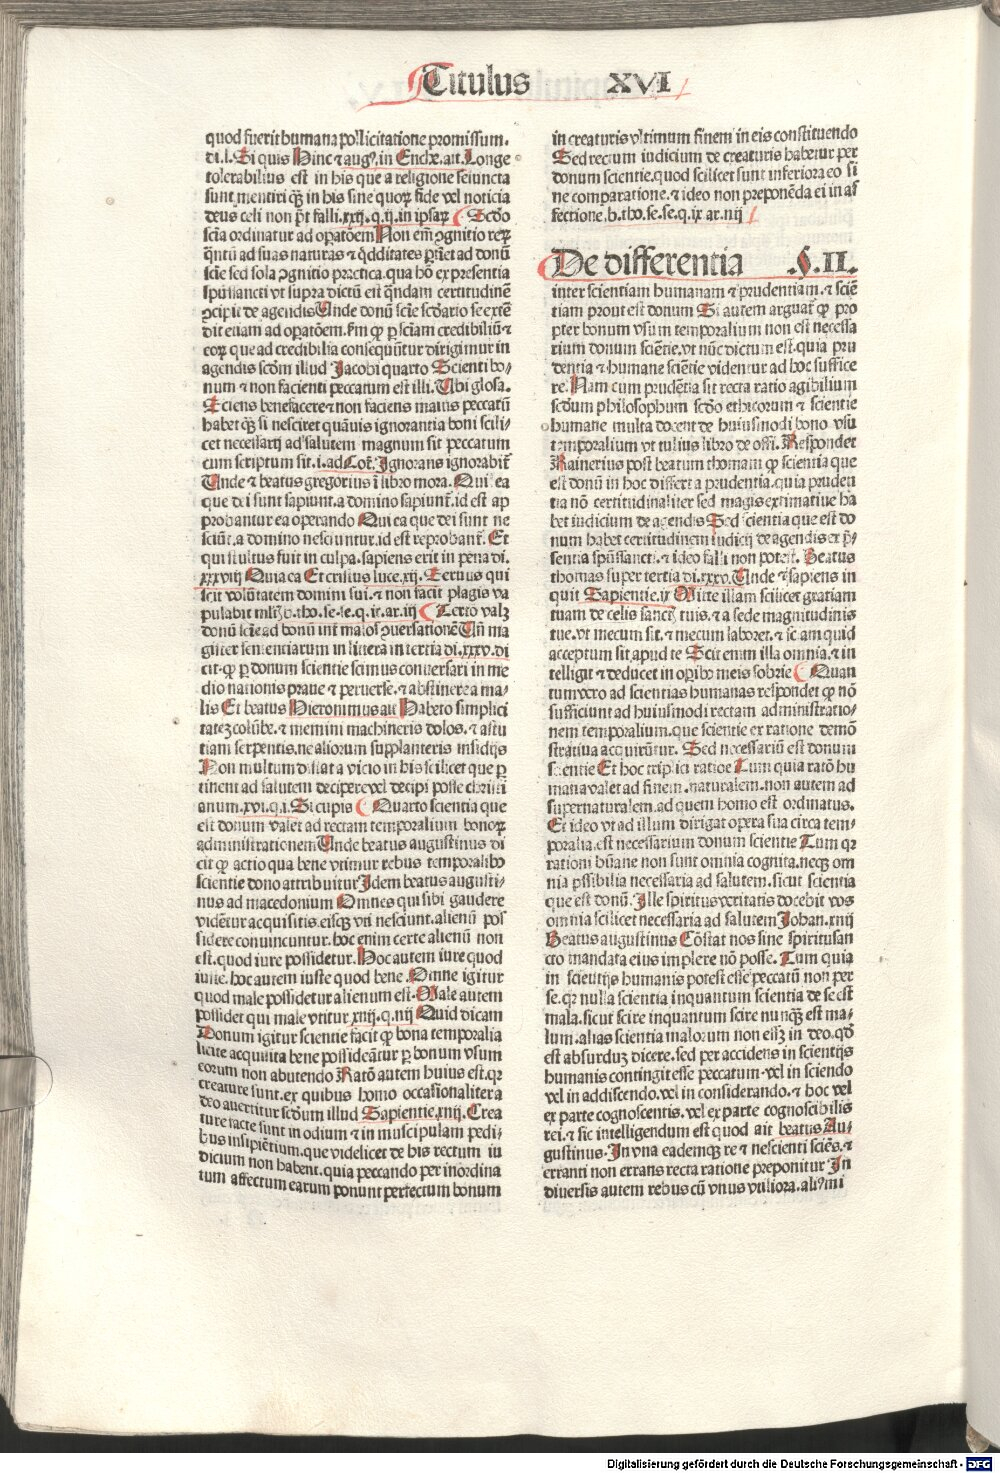 Titulus XVI
quod fuerit humana pollicitatione promissum.
di.l. Si quis Hinc & augꝰ. in Ench. ait. Longe
tolerabilius est in his que a religione seiuncta
sunt mentiri qꝫ in his sine quoꝝ fide vel noticia
deus celi non pt̄ falli. xxij. q. ij. in ipsaꝝ Scd̓o
sciā ordinatur ad opatōem Non em̄ ꝯgnitio reꝝ
qn̄tū ad suas naturas & qdditates ꝑtinet ad donū
sciē sed sola ꝯgnitio practica. qua hō ex presentia
spūssancti vt supra dictū est qndam certitudinē
ꝯcipit de agendis Unde donū sciē scd̄ario se extē
dit etiam ad opatōem. fm qꝙ ꝑ sciam credibiliū &
eoꝝ que ad credibilia consequūtur dirigimur in
agendis scd̄m illud Jacobi quarto Scienti bo-
num & non facienti peccatum est illi. Ubi glosa.
Sciens benefacere & non faciens maius peccatū
habet qꝫ si nesciret quāuis ignorantia boni scili-
cet necessarij ad salutem magnum sit peccatum
cum scriptum sit. i. ad Cor. Ignorans ignorabit̄
Unde & beatus gregorius i libro mora. Qui ea
que dei sunt sapiunt. a domino sapiunt̄. id est ap
probantur ea operando Qui ea que dei sunt ne
sciūt. a domino nesciuntur. id est reprobant̄. Et
qui stultus fuit in culpa. sapiens erit in pena di.
xxxviij Quia ea Et crisius luce. xij. Seruus qui
scit volūtatem domini sui. & non facit plagis va
pulabit ml̄tꝭ b. tho. se. se. q. ix. ar. iij Tertio valꝫ
donū sciē ad bonū int̄ malos ꝯuersationē Un̄ ma
gister sententiarum in littera in tertia di. xxxv. di
cit qꝙ ꝑ donum scientie scimus conuersari in me
dio nationis praue & peruerse. & abstinere a ma-
lis Et beatus Hieronimus ait Habeto simplici
tateꝫ colūbe. & memini machineris dolos. & astu
tiam serpentis. ne aliorum supplanteris insidijs
Non multum distat a vicio in his scilicet que ꝑ
tinent ad salutem decipere vel decipi posse christi
anum. xvi. q. i. Si cupis Quarto scientia que
est donum valet ad rectam temporalium bonoꝝ
administrationem Unde beatus augustinus di
cit qꝙ actio qua bene vtimur rebus temporalibꝰ
scientie dono attribuitur Idem beatus augusti-
nus ad macedonium Omnes qui sibi gaudere
vidētur acquisitis. eisqꝫ vti nesciunt. alienū pos
sidere conuincuntur. hoc enim certe alienū non
est. quod iure possidetur. Hoc autem iure quod
iuste. hoc autem iuste quod bene. Omne igitur
quod male possidetur alienum est. Male autem
possidet qui male vtitur xiiij. q. iiij Quid dicam
Donum igitur scientie facit qꝙ bona temporalia
licite acquisita bene possideātur ꝑ bonum vsum
eorum non abutendo Ratō autem huius est. qꝛ
creature sunt. ex quibus homo occasionaliter a
deo auertitur scd̄um illud Sapientie. xiiij. Crea
ture facte sunt in odium & in muscipulam pedi-
bus insipiētium. que videlicet de his rectum iu
dicium non habent. quia peccando per inordina
tum affectum earum ponunt perfectum bonum
in creaturis vltimum finem in eis constituendo
Sed rectum iudicium de creaturis habetur per
donum scientie. quod scilicet sunt inferiora eo si
ne comparatione. & ideo non preponēda ei in af
fectione. b. tho. se. se. q. ix ar. iiij
De differentia .§.II.
inter scientiam humanam & prudentiam. & sciē
tiam prout est donum Si autem arguat̄ qꝙ pro
pter bonum vsum temporalium non est necessa
rium donum sciētie. vt nūc dictum est. quia pru
dentia & humane sciētie videntur ad hoc suffice
re. Nam cum prudētia sit recta ratio agibilium
scd̄um philosophum scd̄o ethicorum & scientie
humane multa docent de huiusmodi bono vsu
temporalium vt tulius libro de offi. Respondet
Rainerius post beatum thomam qꝙ scientia que
est donū in hoc differt a prudentia. quia pruden
tia nō certitudinaliter sed magis extimatiue ha
bet iudicium de agendis Sed scientia que est do
num habet certitudinem iudicij de agendis ex p̄-
sentia spūssancti. & ideo falli non potest. Beatus
thomas super tertia di. xxxv. Unde & sapiens in
quit Sapientie. ix Mitte illam scilicet gratiam
tuam de celis sanctis tuis. & a sede magnitudinis
tue. vt mecum sit. & mecum laboret. & sciam quid
acceptum sit apud te Scit enim illa omnia. & in
telligit & deducet in opibꝰ meis sobrie Quan
tum vero ad scientias humanas respondet qꝙ nō
sufficiunt ad huiusmodi rectam administratio-
nem temporalium. que scientie ex ratione demō
stratiua acquirūtur. Sed necessariū est donum
scientie Et hoc triplici ratiōe Tum quia ratō hu
mana valet ad finem naturalem. non autem ad
supernaturalem. ad quem homo est ordinatus.
Et ideo vt ad illum dirigat opera sua circa tem-
poralia. est necessarium donum scientie Tum qꝛ
rationi hūane non sunt omnia cognita. neqꝫ om
nia ꝑssibilia necessaria ad salutem. sicut scientia
que est donū. Ille spiritus veritatis docebit vos
omnia scilicet necessaria ad salutem Johan. xiiij
Beatus augustinus Cōstat nos sine spiritusan
cto mandata eius implere nō posse. Tum quia
in scientijs humanis potest esse peccatū non per
se. qꝛ nulla scientia inquantum scientia de se est
mala. sicut scire inquantum scire nunqꝫ est ma-
lum. alias scientia malorum non essꝫ in deo. qd̄
est absurduꝫ dicere. sed per accidens in scientijs
humanis contingit esse peccatum. vel in sciendo
vel in addiscendo. vel in considerando. & hoc vel
ex parte cognoscentis. vel ex parte cognoscibilis
rei. & sic intelligendum est quod ait beatus Au-
gustinus. In vna eademqꝫ re & nescienti sciēs. &
erranti non errans recta ratione preponitur In
diuersis autem rebus cū vnus vtiliora. aliꝰ mi
Digitalisierung gefördert durch die Deutsche Forschungsgemeinschaft - DFG